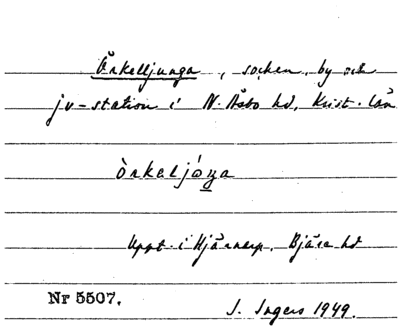 Örkelljunga, socken, by och
jv-station i N. Åsbo hd, Krist. län
òrkeljóŋa
Uppt. i Hjärnarp. Bjäre hd
Nr 5507.
J. Ingers 1949.